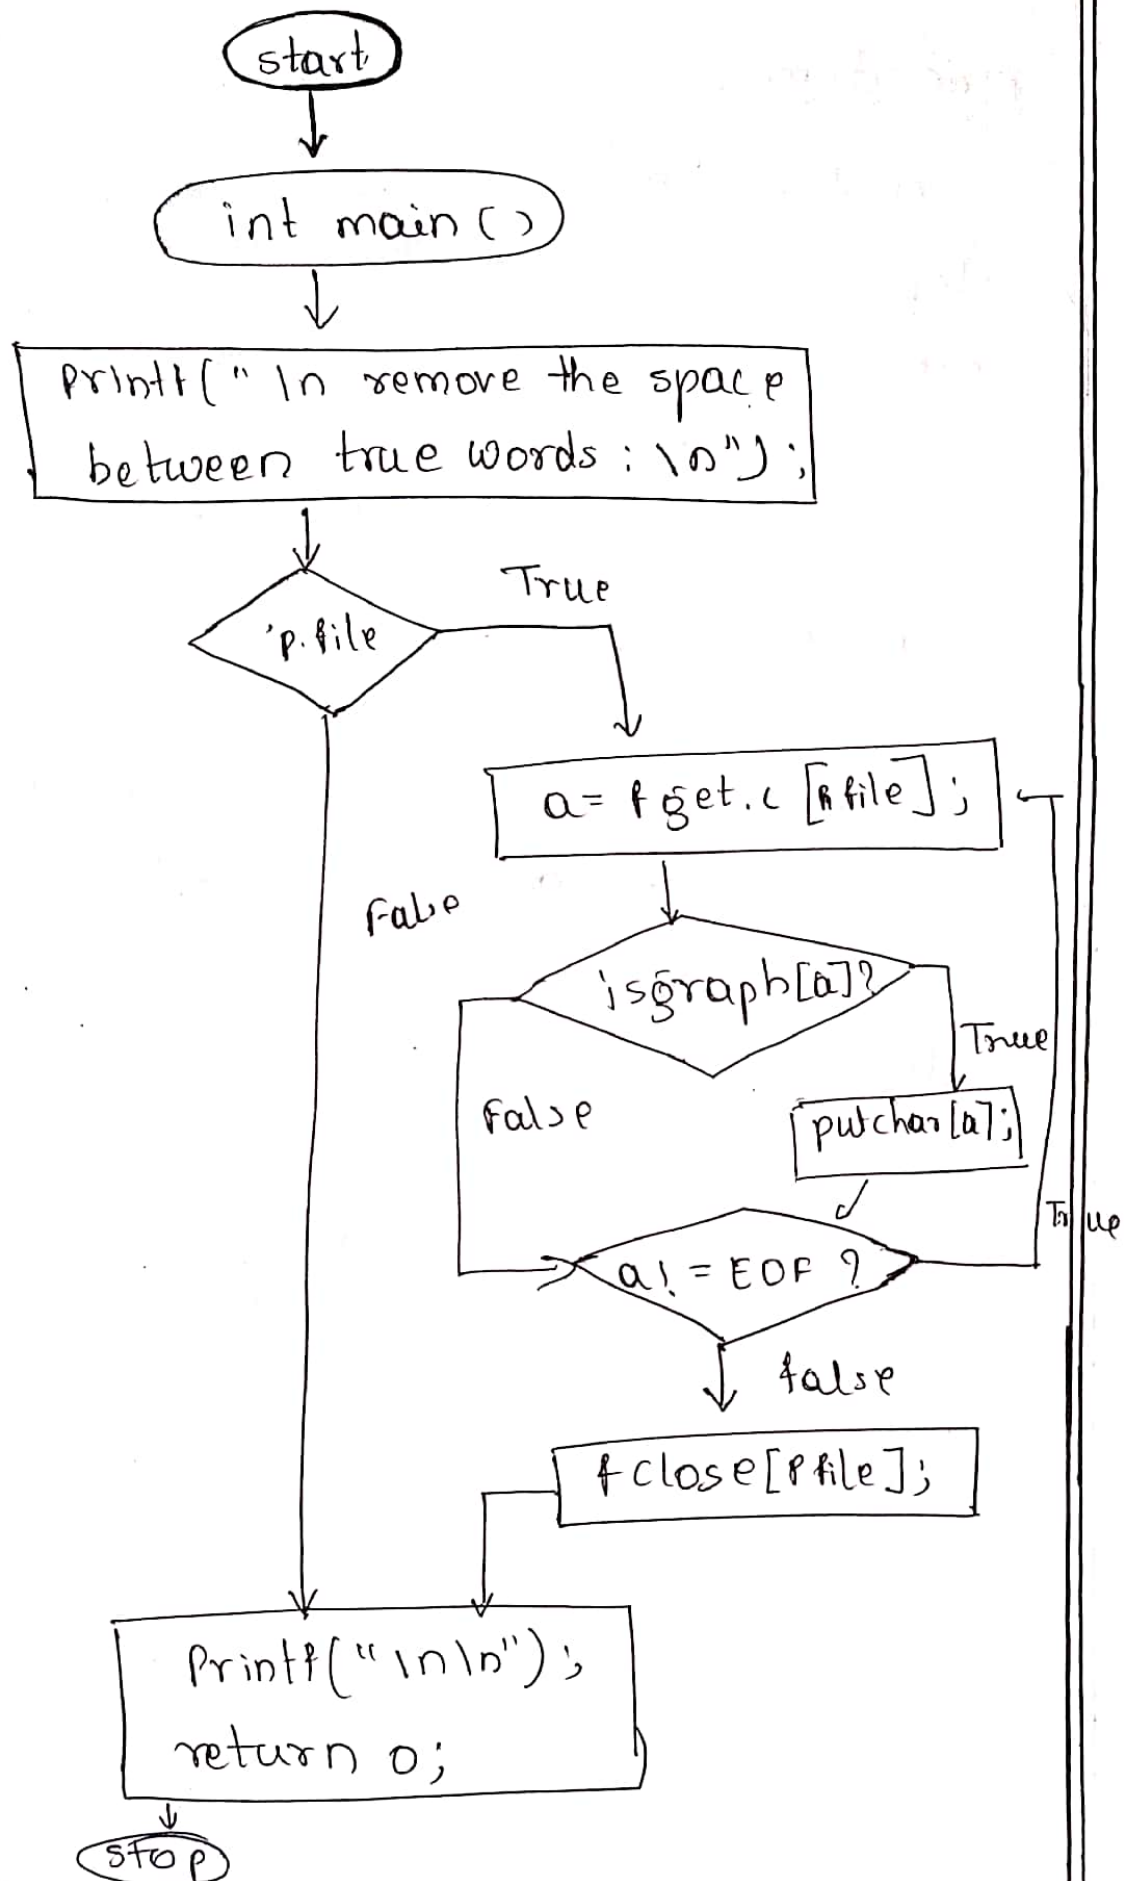 start
int main ()
Printf(" \n remove the space
between true words : \n");
True
'p.file
a = fget.c [Pfile];
False
isgraph[a]?
True
False
putchar[a];
True
a! = EOF ?
false
fclose[Pfile];
Printf("\n\n");
return 0;
stop